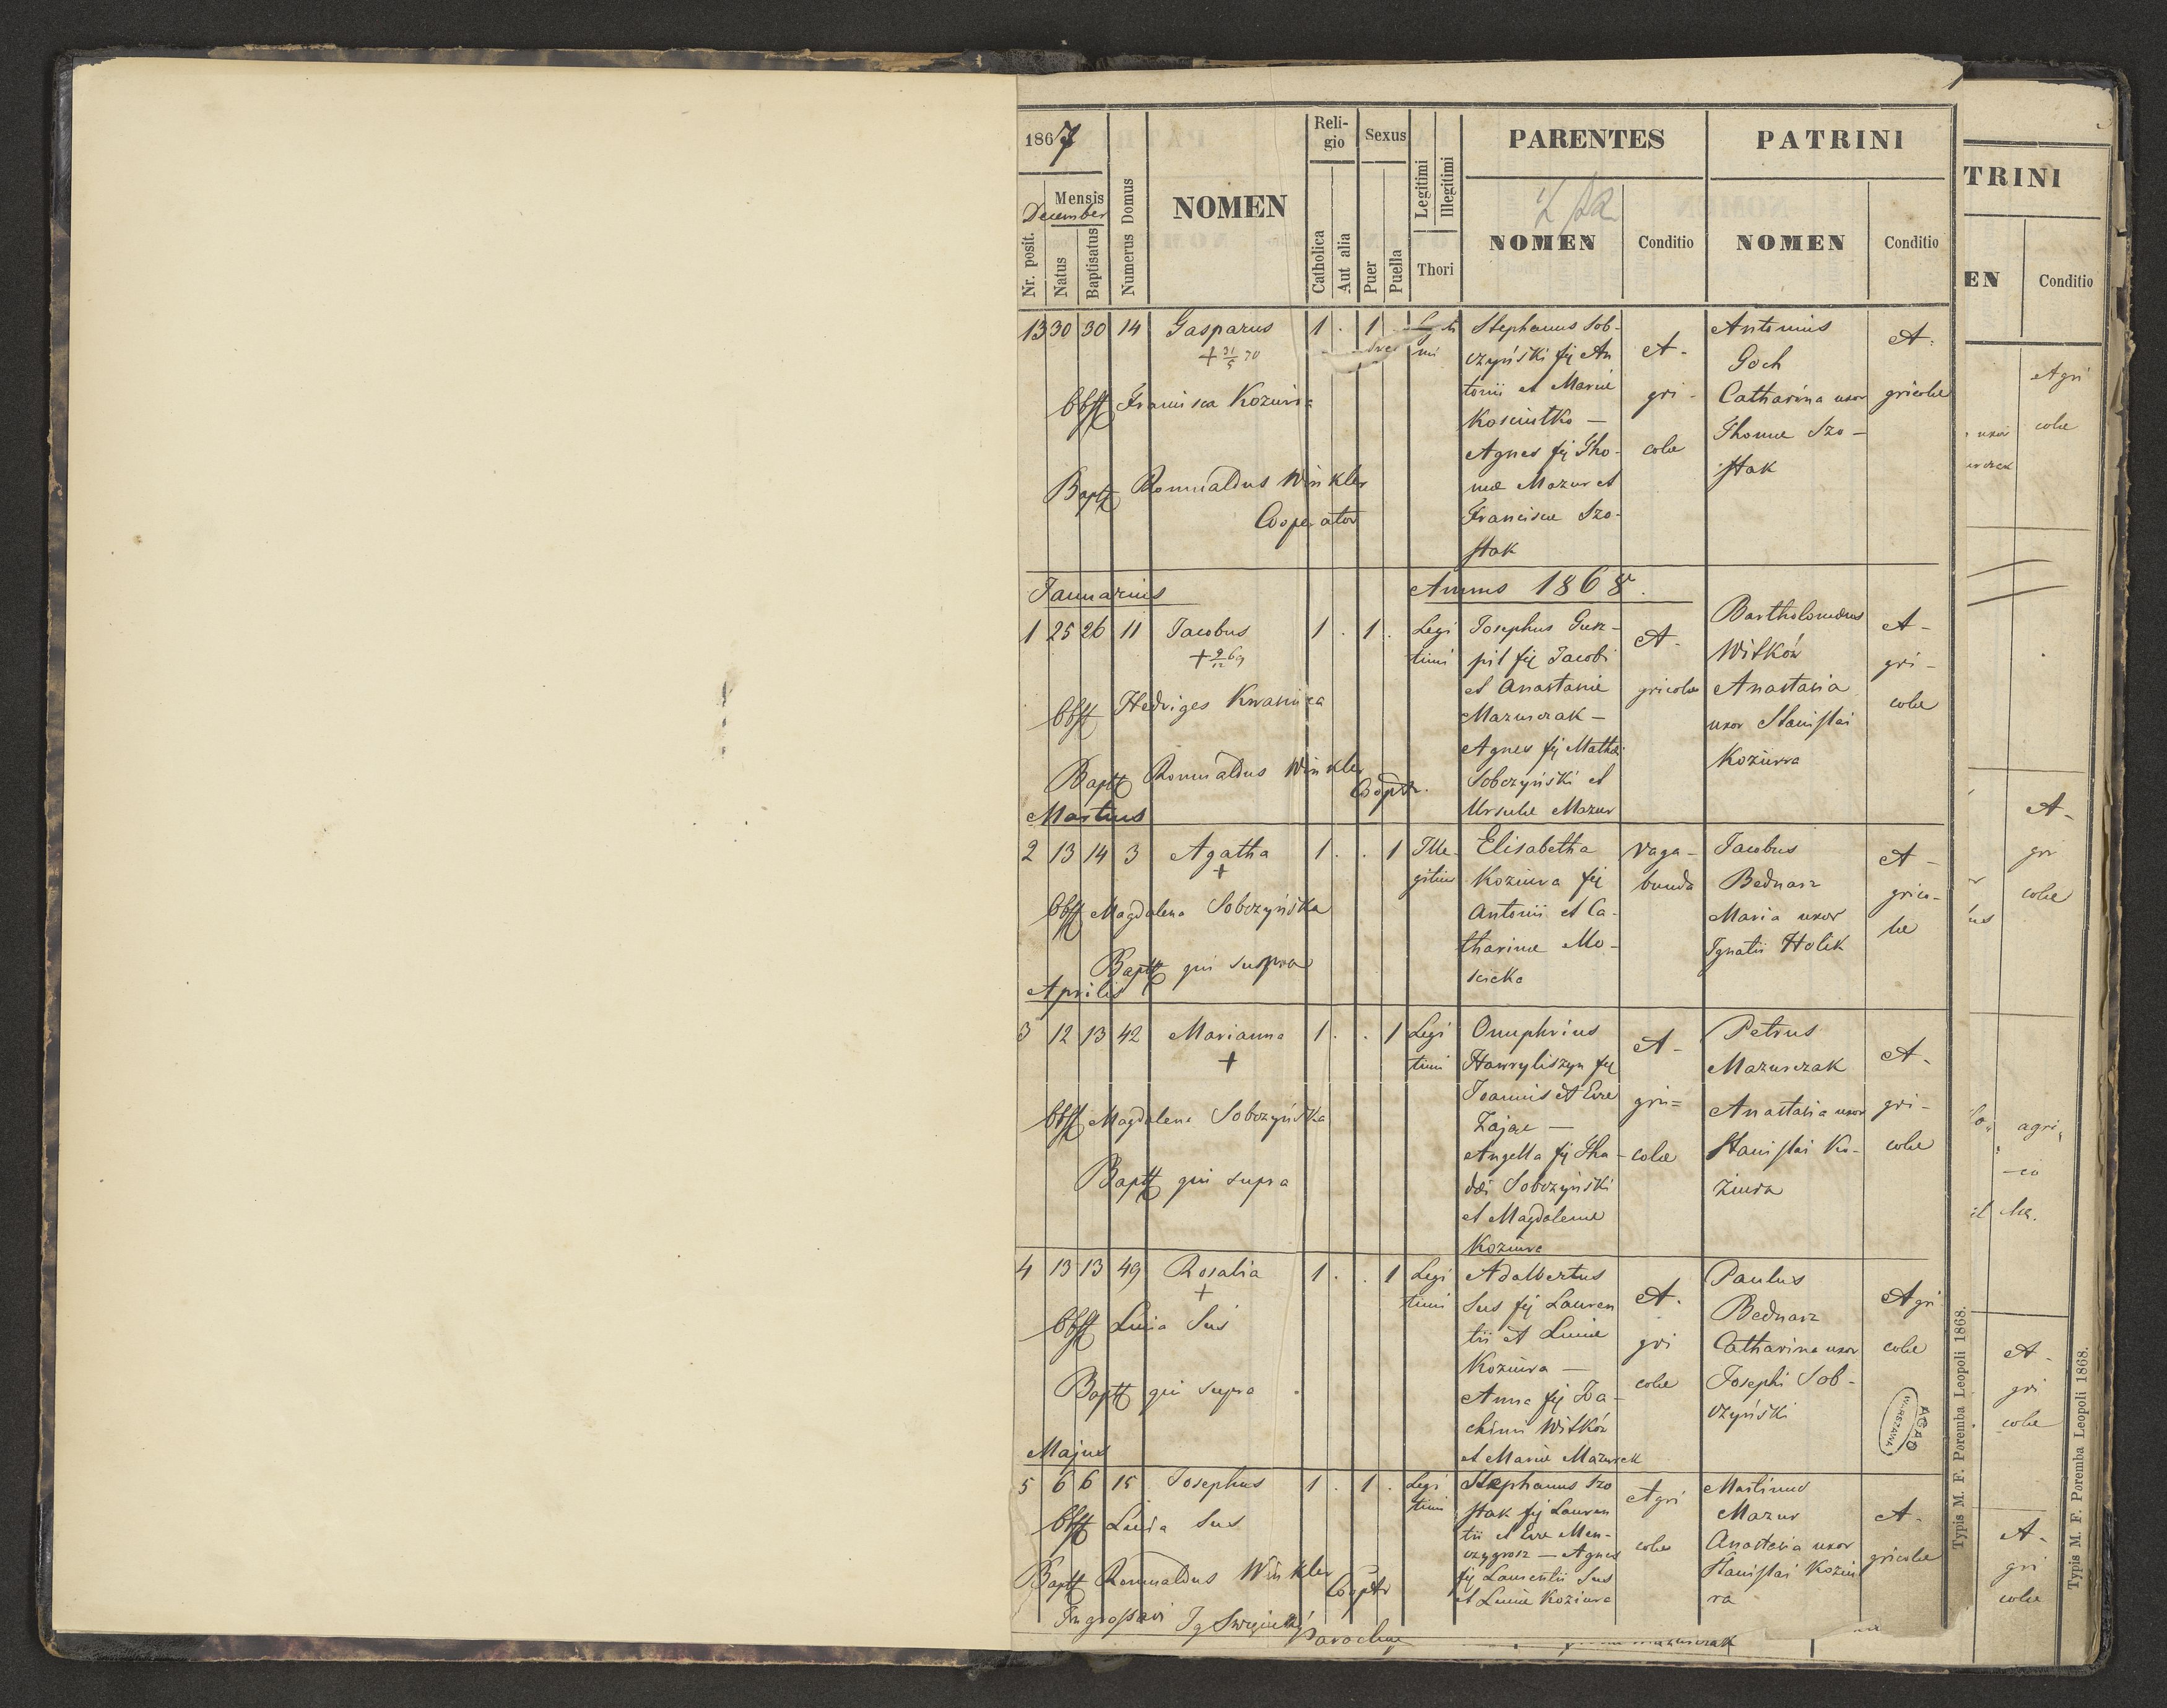 1867
Mensis
December
Nr. posit.
Natus
Baptisatus
Numerus Domus
NOMEN
Religio
Catholica
Aut alia
Sexus
Puer
Puella
Legitimi
Illegitimi
Thori
PARENTES
NOMEN
Conditio
PATRINI
NOMEN
Conditio
13 30 30 14 Gasparus 1 . 1
+ 31/5 70
Obst Francisca Koziura
Bapt Romualdus Winkler
Cooperator
Stephanus Sob-
czyński fij An
tonii et Mariae
Kosciutko —
Agnes fij Tho-
mae Mazur et
Franciscae Szo-
stak
A-
gri-
colae
Antonius
Goch
Catharina uxor
Thomae Szo-
stak
A-
gricolae
Januarius
Annus 1868.
1 25 26 11 Jacobus 1 . 1 . Legi
timi
+ 9/12 69
Obst Hedviges Kwasnica
Bapt Romualdus Winkler
Cooptr.
Josephus
pil fij Jacobi
et Anastasiae
Mazurczak —
Agnes fij Mathaei
Sobczyński et
Ursulae Mazur
A-
gricolae
Bartholomaeus
Witków
Anastasia
uxor Stanislai
Koziurra
A-
gri-
colae
Martius
2 13 14 3 Agatha 1 . . 1 Ille-
gitimi
+
Obst Magdalena Sobczyńska
Bapt qui supra
Elisabetha
Koziura fij
Antonii et Ca-
tharinae Mo-
scicka
vaga-
bunda
Jacobus
Bednarz
Maria uxor
Ignatii Holik
A-
grico-
lae
Aprilis
3 12 13 42 Marianna 1 . . 1 Legi
timi
+
Obst Magdalena Sobczyńska
Bapt qui supra
Onuphrius
Hawryliszyn fij
Joannis et Evae
Zając —
Angella fij Tha-
daei Sobczyński
et Magdalenae
Koziura
A-
gri=
colae
Petrus
Mazurczak
Anastasia uxor
Stanislai Ko-
ziura
A-
gri-
colae
4 13 13 49 Rosalia 1 . . 1 Legi
timi
+
Obst Lucia Sus
Bapt qui supra
Adalbertus
Sus fij Lauren
tii et Luciae
Koziura —
Anna fij Joa-
chimi Witków
et Mariae Mazurek
A-
gri
colae
Paulus
Bednarz
Catharina uxor
Josephi Sob-
czyński
Agri
colae
AGAD
WARSZAWA
Majus
5 6 6 15 Josephus 1 . 1 . Legi
timi
Obst Lucia Sus
Bapt Romualdus Winkler
Cooptr
Stephanus Szo
stak fij Lauren
tii et Evae Men-
czygrosz — Agnes
fij Laurentii Sus
et Luciae Koziura
Agri
colae
Martinus
Mazur
Anastasia uxor
Stanislai Koziu
ra
A-
gricolae
Ingrossavi Ig Parochus
Typis M. F. Poremba Leopoli 1868.
TRINI
EN
Conditio
Agri
colae
uxor
A-
gri
colae
agri
A-
gri
colae
A-
gri
colae
Typis M. F. Poremba Leopoli 1868.